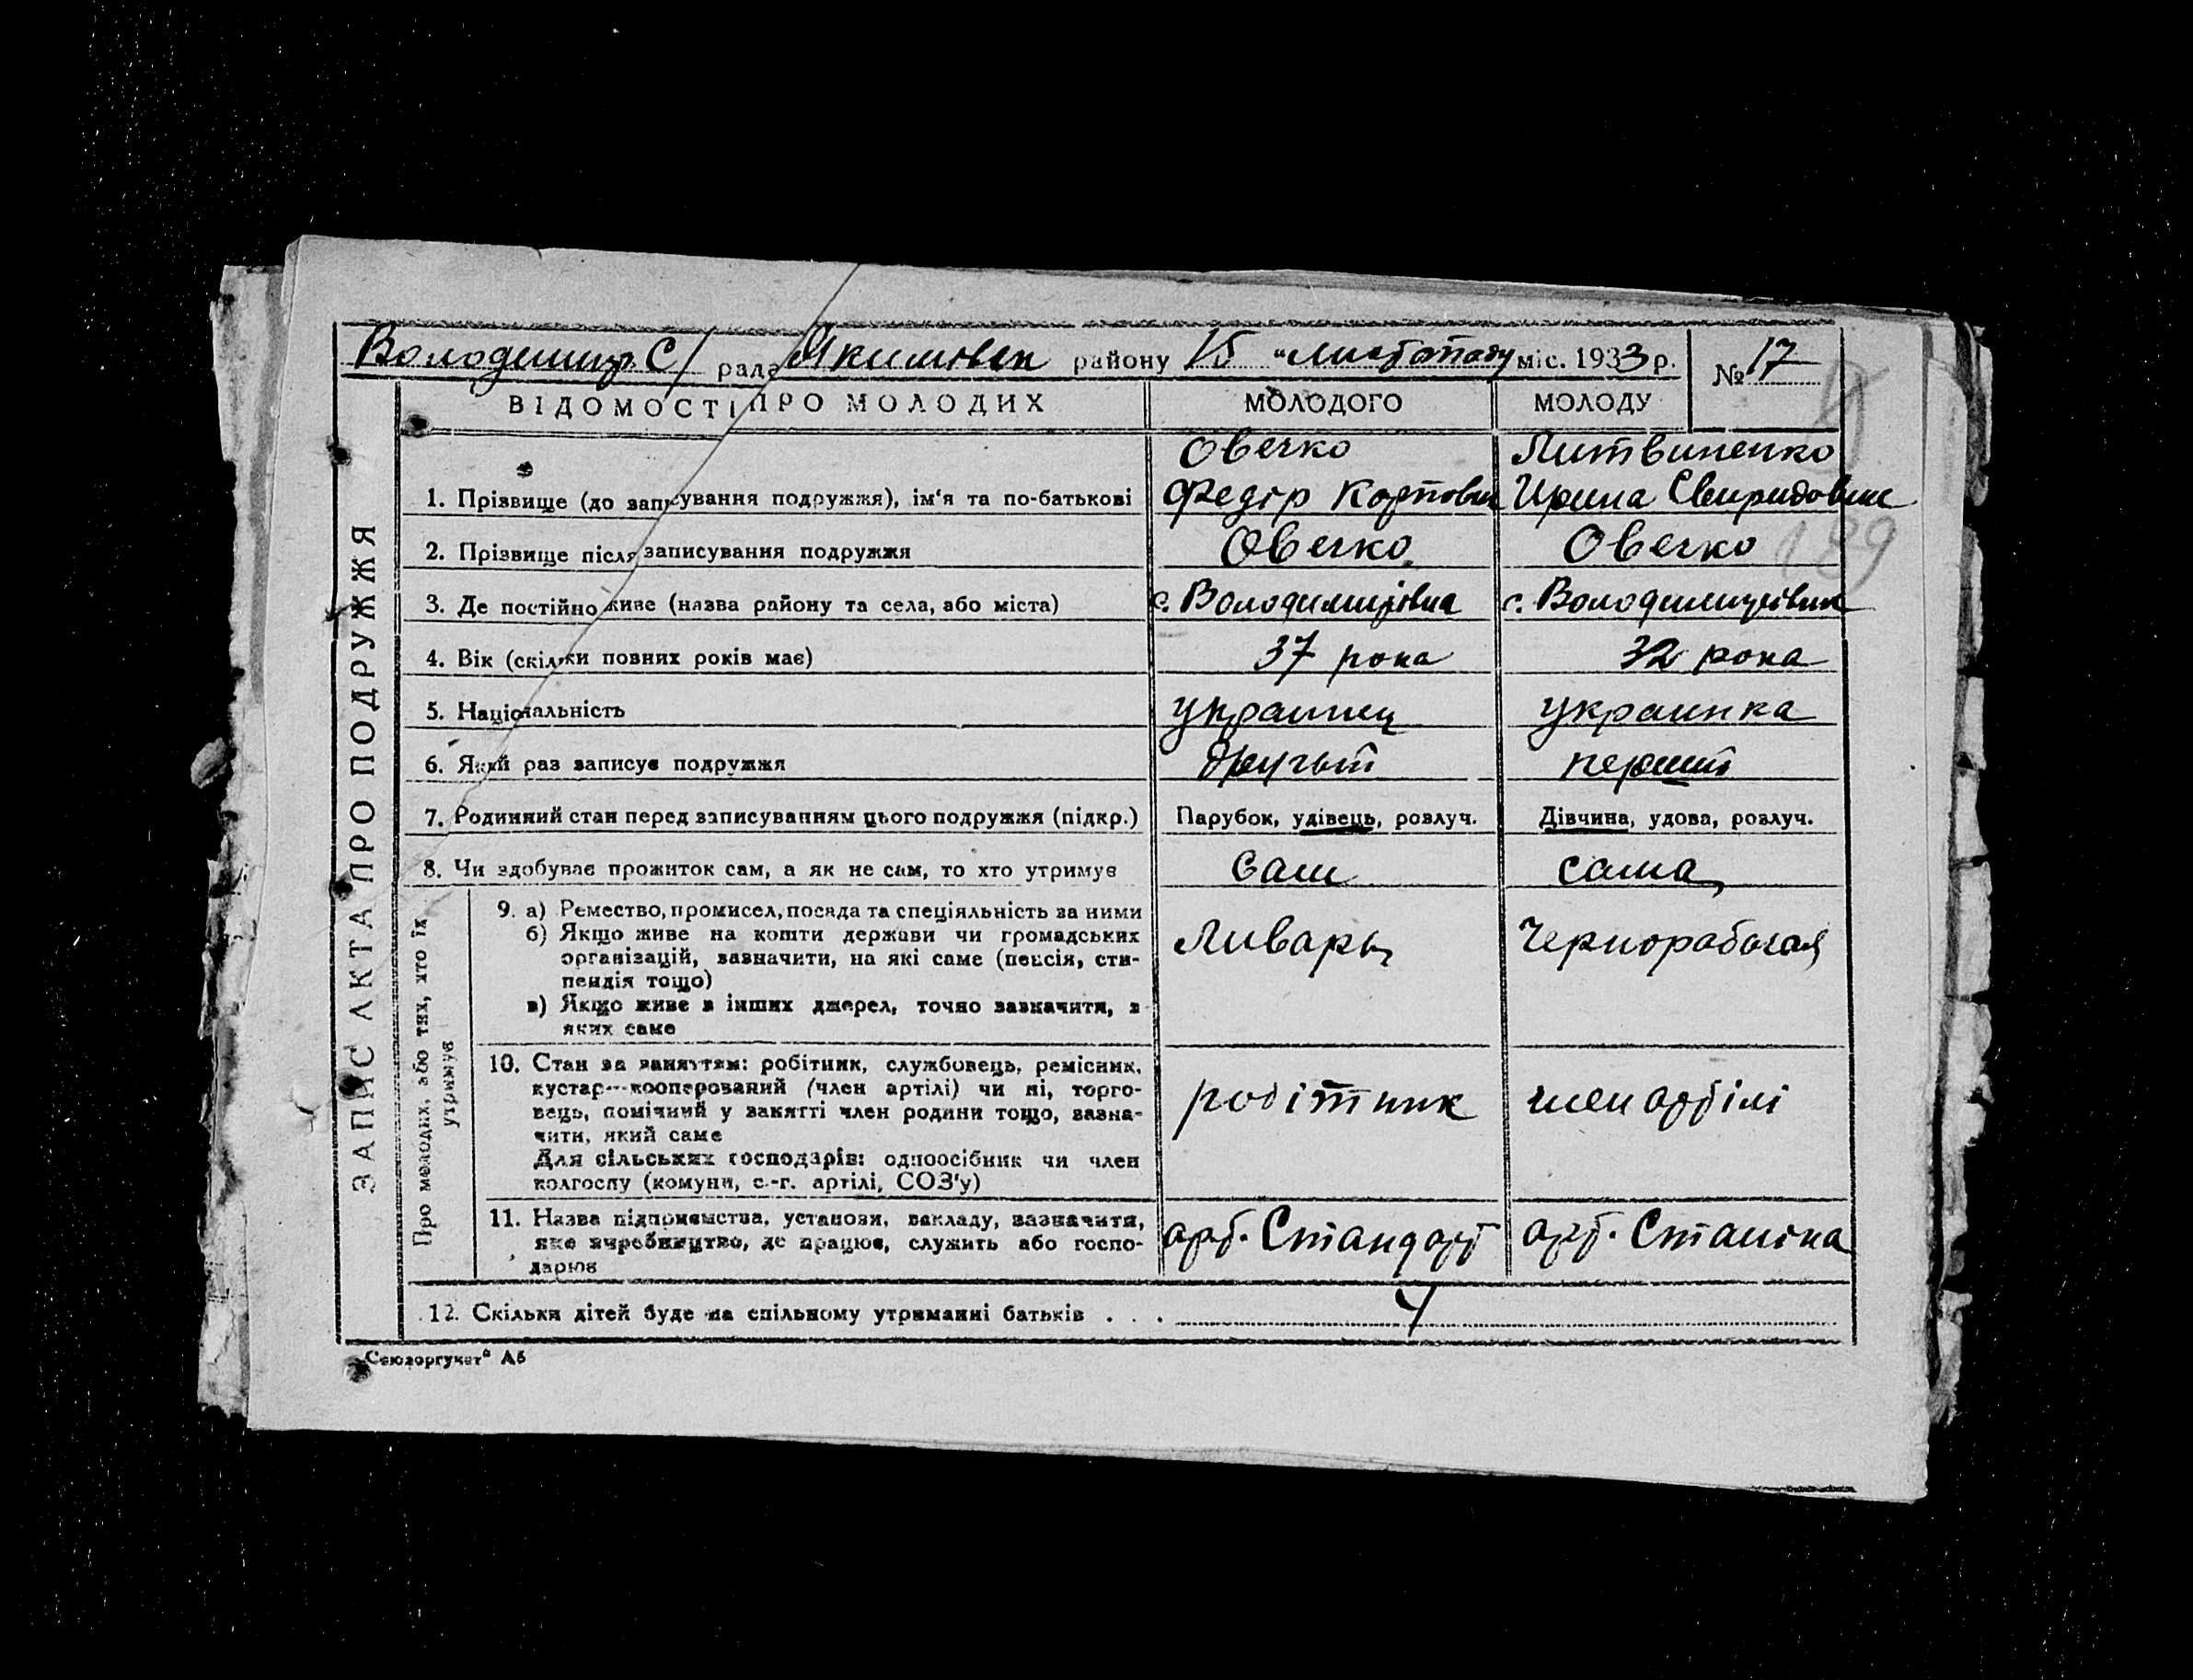 Володимир. С/ рада Якимівск району 15 "листопаду міс. 1933 р. № 17
ВІДОМОСТІ ПРО МОЛОДИХ МОЛОДОГО МОЛОДУ
Овечко Литвиненко
1. Прізвище (до записування подружжя), ім'я та по-батькові Федір Карпович Ирина Свиридовна
2. Прізвище після записування подружжя Овечко Овечко
139
3. Де постійно живе (назва району та села, або міста) с. Володимирівка с. Володимирівка
4. Вік (скільки повних років має) 37 рока 32 рока
5. Національність украинец украинка
6. Який раз записує подружжя другит перший
7. Родинний стан перед записуванням цього подружжя (підкр.) Парубок, удівець, розлуч. Дівчина, удова, розлуч.
8. Чи здобуває прожиток сам, а як не сам, то хто утримує сам сама
ЗАПИС АКТА ПРО ПОДРУЖЖЯ
Про молодих, або тих, хто їх
утримує
9. а) Ремество, промисел, посада та спеціяльність за ними
б) Якщо живе на кошти держави чи громадських Ливарь Чернорабочая
організацій, зазначити, на які саме (пенсія, сти-
пендія тощо)
в) Якщо живе з інших джерел, точно зазначити, з
яких саме
10. Стан за заняттям: робітник, службовець, ремісник,
кустар—кооперований (член артілі) чи ні, торго-
вець, помічний у занятті член родини тощо, зазна- робітник член артілі
чити, який саме
Для сільських господарів: одноосібник чи член
колгоспу (комуни, с.-г. артілі, СОЗ'у)
11. Назва підприємства, установи, закладу, зазначити,
яке виробництво, де працює, служить або госпо- арт. Стандарт арт. Сталіна
дарює
12. Скільки дітей буде на спільному утриманні батьків . . . 4
„Союзоргучет“ А5